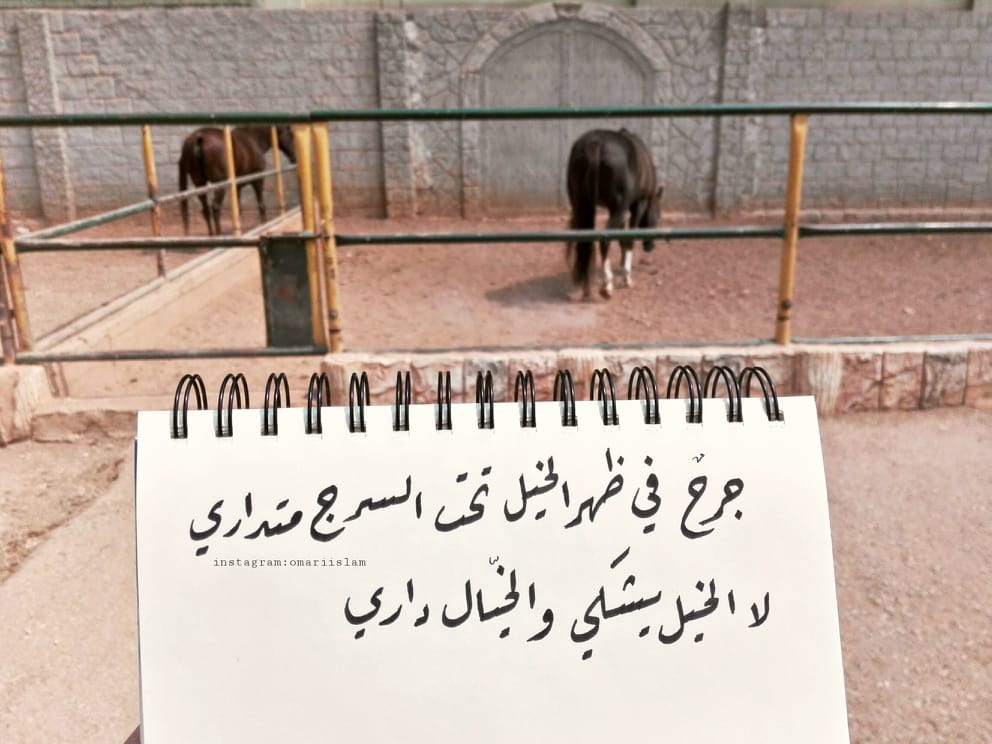 جرحٌ في ظهر الخيل تحت السرج متداري
instagram:omariislam
لا الخيل يشكي والخيّال داري